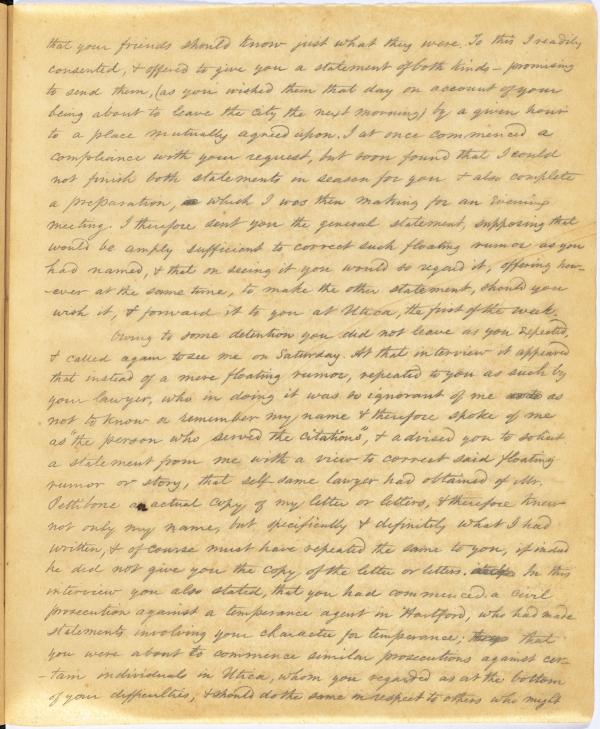 that your friends should know just what they were. To this I readily
consented, & offered to give you a statement of both kinds – promising
to send them, (as you wished them that day on account of your
being about to leave the city the next morning) by a given hour
to a place mutually agreed upon. I at once commenced a
compliance with your request, but soon found that I could
not finish both statements in season for you & also complete
a preparation, which I was then making for an evening
meeting. I therefore sent you the general statement, supposing that
would be amply sufficient to correct such floating rumor as you
had named, & that on seeing it you would so regard it, offering how-
-ever at the same time, to make the other statement, should you
wish it, & forward it to you at Utica, the first of the week.
Owing to some detention you did not leave as you expected,
& called again to see me on Saturday. At that interview it appeared
that instead of a mere floating rumor, repeated to you as such by
your lawyer, who in doing it was so ignorant of me as
not to know or remember my name & therefore spoke of me
as "the person who served the citations", & advised you to solicit
a statement from me with a view to correct said floating
rumor or story, that self same lawyer had obtained of Mr.
Pettibone an actual copy of my letter or letters, & therefore knew
not only my name, but specifically & definitely what I had
written, & of course must have repeated the same to you, if indeed
he did not give you the copy of the letter or letters. In this
interview you also stated, that you had commenced a civil
prosecution against a temperance agent in Hartford, who had made
statements involving your character for temperance; that
you were about to commence similar prosecutions against cer-
-tain individuals in Utica, whom you regarded as at the bottom
of your difficulties, & should do the same in respect to others who might